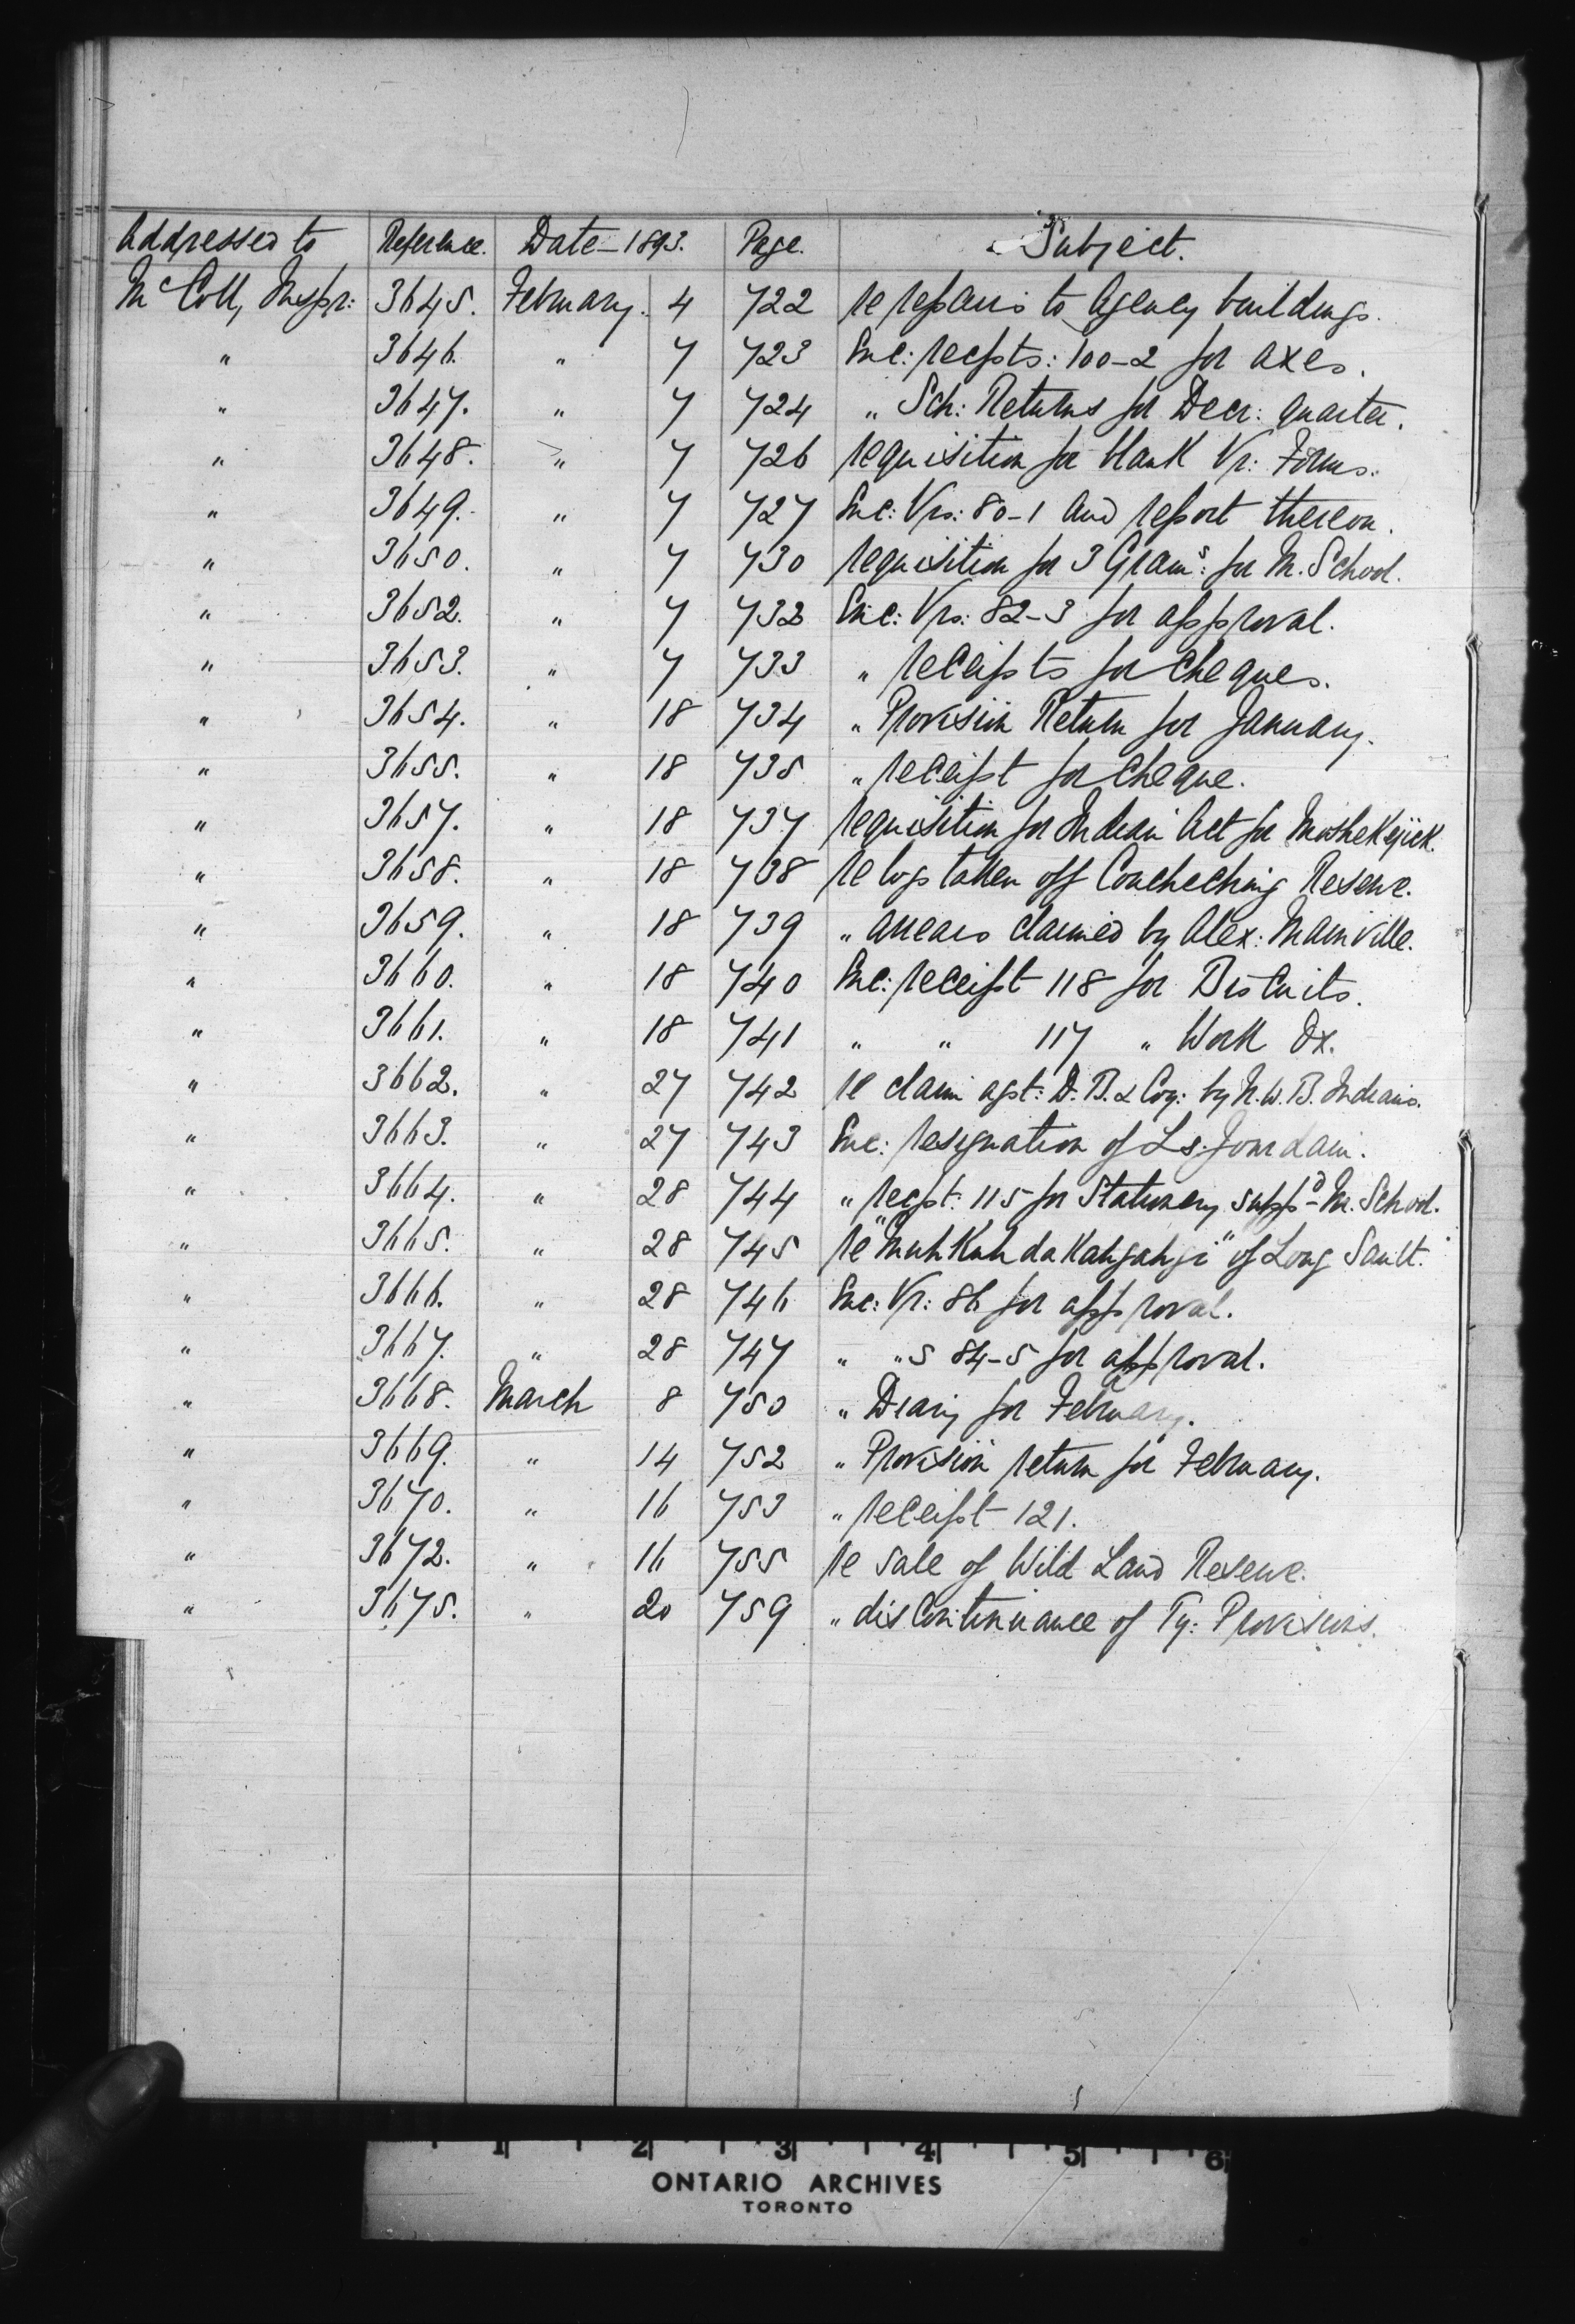 Addressed to Reference. Date - 1893. Page. Subject.
McColl, Inspr: 3645. February. 4 722 re repairs to Agency buildings.
" 3646. " 7 723 Enc: recpts: 100-2 for axes.
" 3647. " 7 724 " Sch: Returns for Decr: quarter.
" 3648. " 7 726 requisition for blank Vr: Forms.
" 3649. " 7 727 Enc: Vrs: 80-1 and report thereon.
" 3650. " 7 730 requisition for 3 Grams: for M. School.
" 3652. " 7 732 Enc: Vrs: 82-3 for approval.
" 3653. " 7 733 " receipts for cheques.
" 3654. " 18 734 " Provision Return for January.
" 3655. " 18 735 " receipt for cheque.
" 3657. " 18 737 requisition for Indian Act for
" 3658. " 18 738 re logs taken off Coucheching Reserve.
" 3659. " 18 739 " arrears claimed by Alex: Mainville.
" 3660. " 18 740 Enc: receipt 118 for Biscuits.
" 3661. " 18 741 " " 117 " Work Ox.
" 3662. " 27 742 re claim agst: D. B. & Coy: by N. W. B. Indians.
" 3663. " 27 743 Enc: resignation of Ls. Jourdain.
" 3664. " 28 744 " recpt: 115 for Stationery suppd - M. School.
" 3665. " 28 745 re of Long Sault.
" 3666. " 28 746 Enc: Vr: 86 for approval.
" 3667. " 28 747 " "s 84-5 for approval.
" 3668. March 8 750 " Diary for February.
" 3669. " 14 752 " Provision return for February.
" 3670. " 16 753 " receipt 121.
" 3672. " 16 755 re sale of Wild Land Reserve.
" 3675. " 20 759 " discontinuance of Ty: Provisions.
1 2 3 4 5 6
ONTARIO ARCHIVES
TORONTO